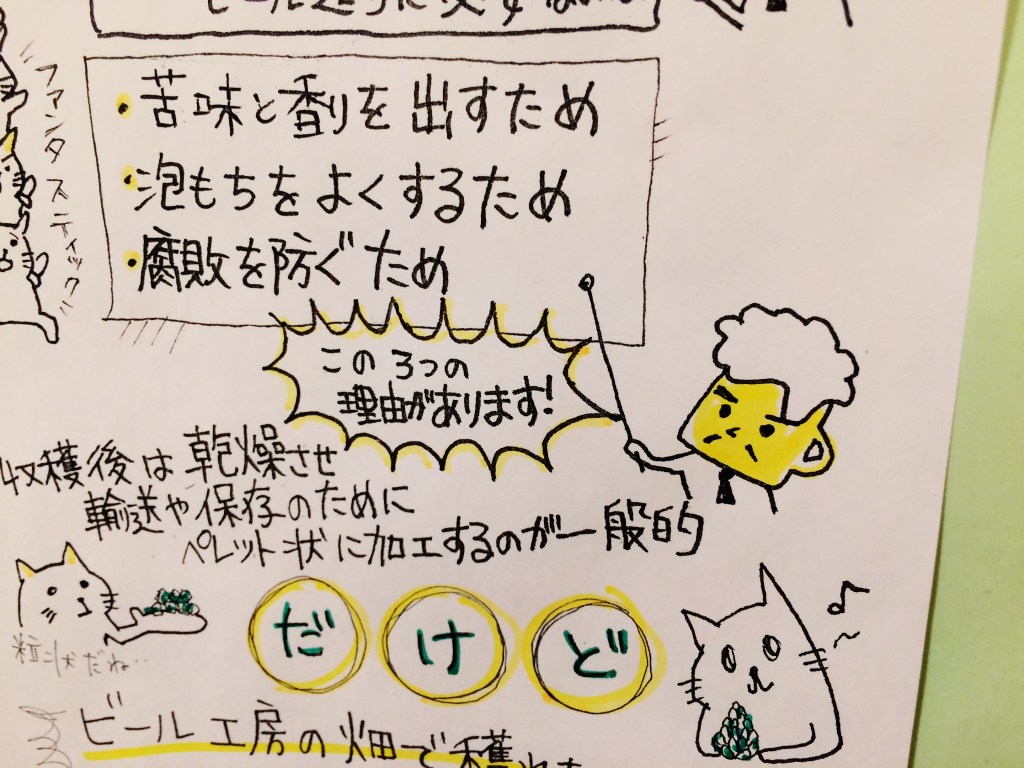 ビール造りに
ファンタスティック
・苦味と香りを出すため
・泡もちをよくするため
・腐敗を防ぐため
この3つの
理由があります!
収穫後は乾燥させ
輸送や保存のために
ペレット状に加工するのが一般的
粒状だね…
だけど
ビール工房の畑で穫れた